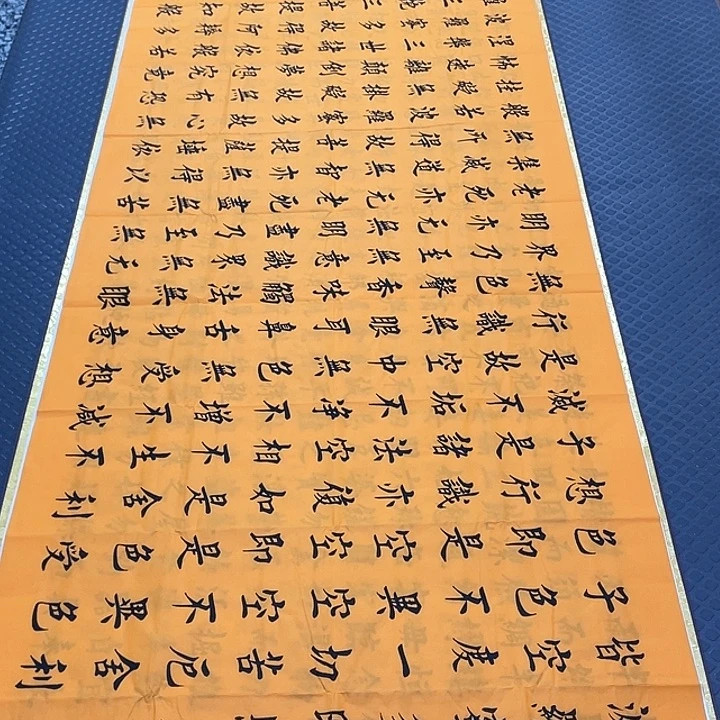 皆空度一切苦厄舍利
子色不異空空不異色
色即是空空即是色受
想行識亦復如是舍利
子是諸法空相不生不
滅不垢不淨不增不減
是故空中無色無受想
行識無眼耳鼻舌身意
無色聲香味觸法無眼
界乃至無意識界無无
明亦无無明盡乃至無
老死亦无老死盡無苦
集滅道無智亦無得以
無所得故菩提薩埵依
般若波羅蜜多故心無
挂礙無掛礙故無有恐
怖遠離顛倒夢想究竟
涅槃三世諸佛依般若
波羅蜜多故得阿耨多
羅三藐三菩提故知般